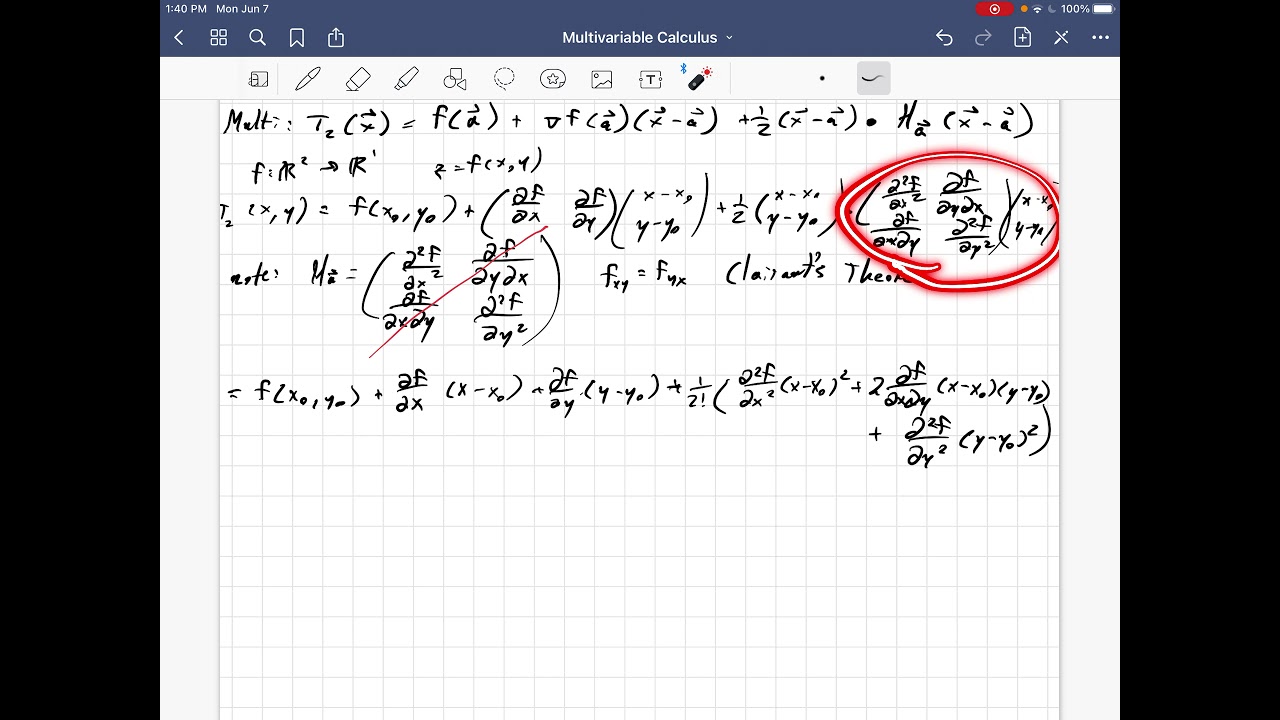 1:40 PM Mon Jun 7 100%
Multivariable Calculus
Multi: T₂(x⃗) = f(a⃗) + ∇f(a⃗)(x⃗-a⃗) + 1/2 (x⃗-a⃗) • H_a⃗ (x⃗-a⃗)
f: ℝ² → ℝ¹ z = f(x,y)
T₂(x,y) = f(x₀,y₀) + (∂f/∂x ∂f/∂y)(x-x₀ y-y₀) + 1/2 (x-x₀ y-y₀) • (∂²f/∂x² ∂f/∂y∂x ∂f/∂x∂y ∂²f/∂y²)(x-x₀ y-y₀)
note: H_a⃗ = (∂²f/∂x² ∂f/∂y∂x ∂f/∂x∂y ∂²f/∂y²) f_xy = f_yx Clairaut's
= f(x₀,y₀) + ∂f/∂x (x-x₀) + ∂f/∂y (y-y₀) + 1/2! (∂²f/∂x² (x-x₀)² + 2 ∂f/∂x∂y (x-x₀)(y-y₀)
+ ∂²f/∂y² (y-y₀)²)